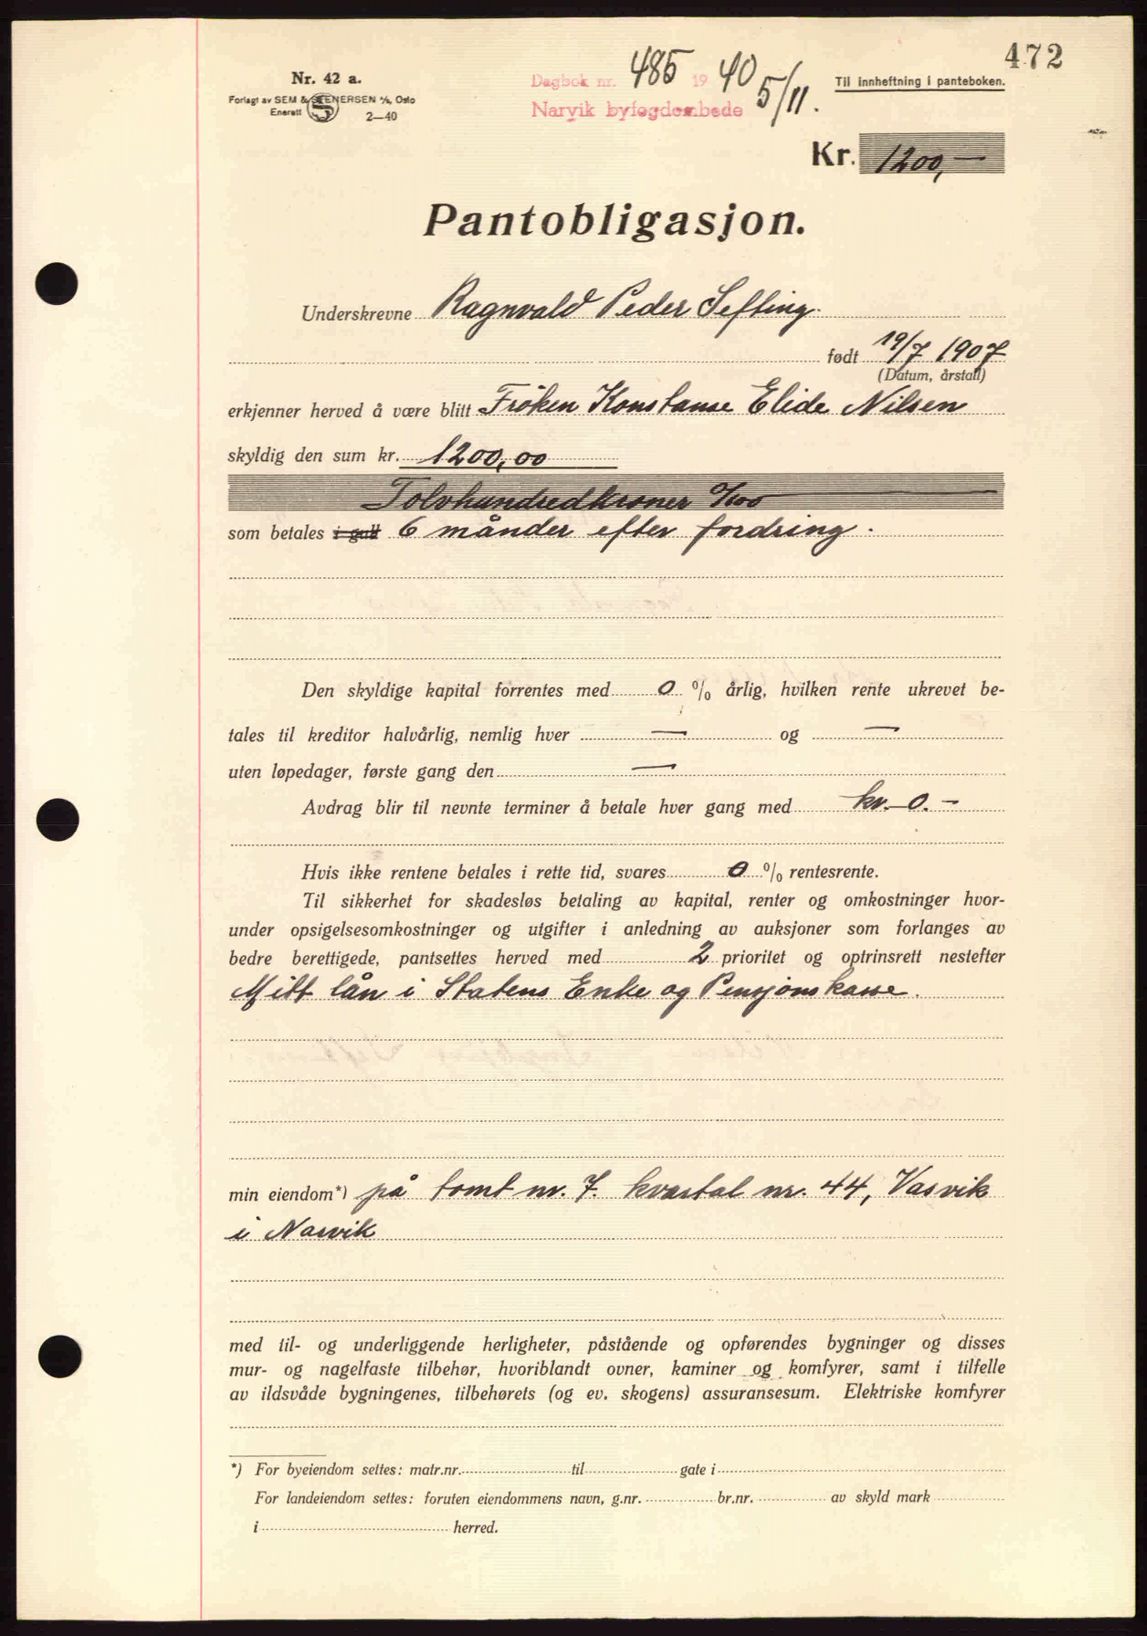 472
Nr. 42 a.
Forlagt av SEM & STENERSEN A/S, Oslo
Enerett 2—40
Dagbok nr. 485 1940 5/11.
Narvik byfogdembede
Til innheftning i panteboken.
Kr. 1200,—
Pantobligasjon.
Underskrevne Ragnvald Peder Sefting
født 19/7 1907
(Datum, årstall)
erkjenner herved å være blitt Frøken Konstanse Elide Nilsen
skyldig den sum kr. 1200,00
Tolvhundredkroner 0/00
som betales i gull 6 månder efter fordring.
Den skyldige kapital forrentes med 0 % årlig, hvilken rente ukrevet be-
tales til kreditor halvårlig, nemlig hver — og —
uten løpedager, første gang den —
Avdrag blir til nevnte terminer å betale hver gang med kr. 0.—
Hvis ikke rentene betales i rette tid, svares 0 % rentesrente.
Til sikkerhet for skadesløs betaling av kapital, renter og omkostninger hvor-
under opsigelsesomkostninger og utgifter i anledning av auksjoner som forlanges av
bedre berettigede, pantsettes herved med 2 prioritet og optrinsrett nestefter
Mitt lån i Statens Enke og Pensjonskasse.
min eiendom*) på tomt nr. 7. kvartal nr. 44, Vasvik
i Narvik
med til- og underliggende herligheter, påstående og opførendes bygninger og disses
mur- og nagelfaste tilbehør, hvoriblandt ovner, kaminer og komfyrer, samt i tilfelle
av ildsvåde bygningenes, tilbehørets (og ev. skogens) assuransesum. Elektriske komfyrer
*) For byeiendom settes: matr.nr. til gate i
For landeiendom settes: foruten eiendommens navn, g.nr. br.nr. av skyld mark
i herred.